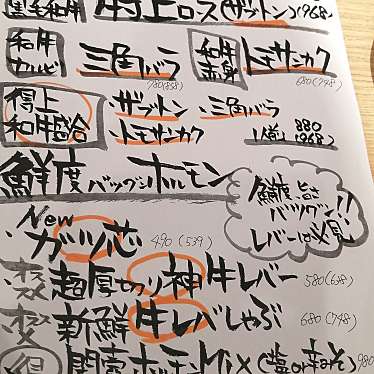 黒毛和牛 特上ロス(ザブトン)1968
和牛カルビ 三角バラ 780(858)
和牛赤身 トモサンカク 680(748)
得上和牛盛合 ザブトン・三角バラ
トモサンカク 1人前 880 968
鮮度バツグンホルモン
鮮度、旨さ
バツグン!!
レバーは必見
New
ガツ芯 490(539)
オススメ 超厚切り神牛レバー 580(638)
オススメ 新鮮牛レバしゃぶ 680(748)
得 Mix(塩or辛みそ) 980